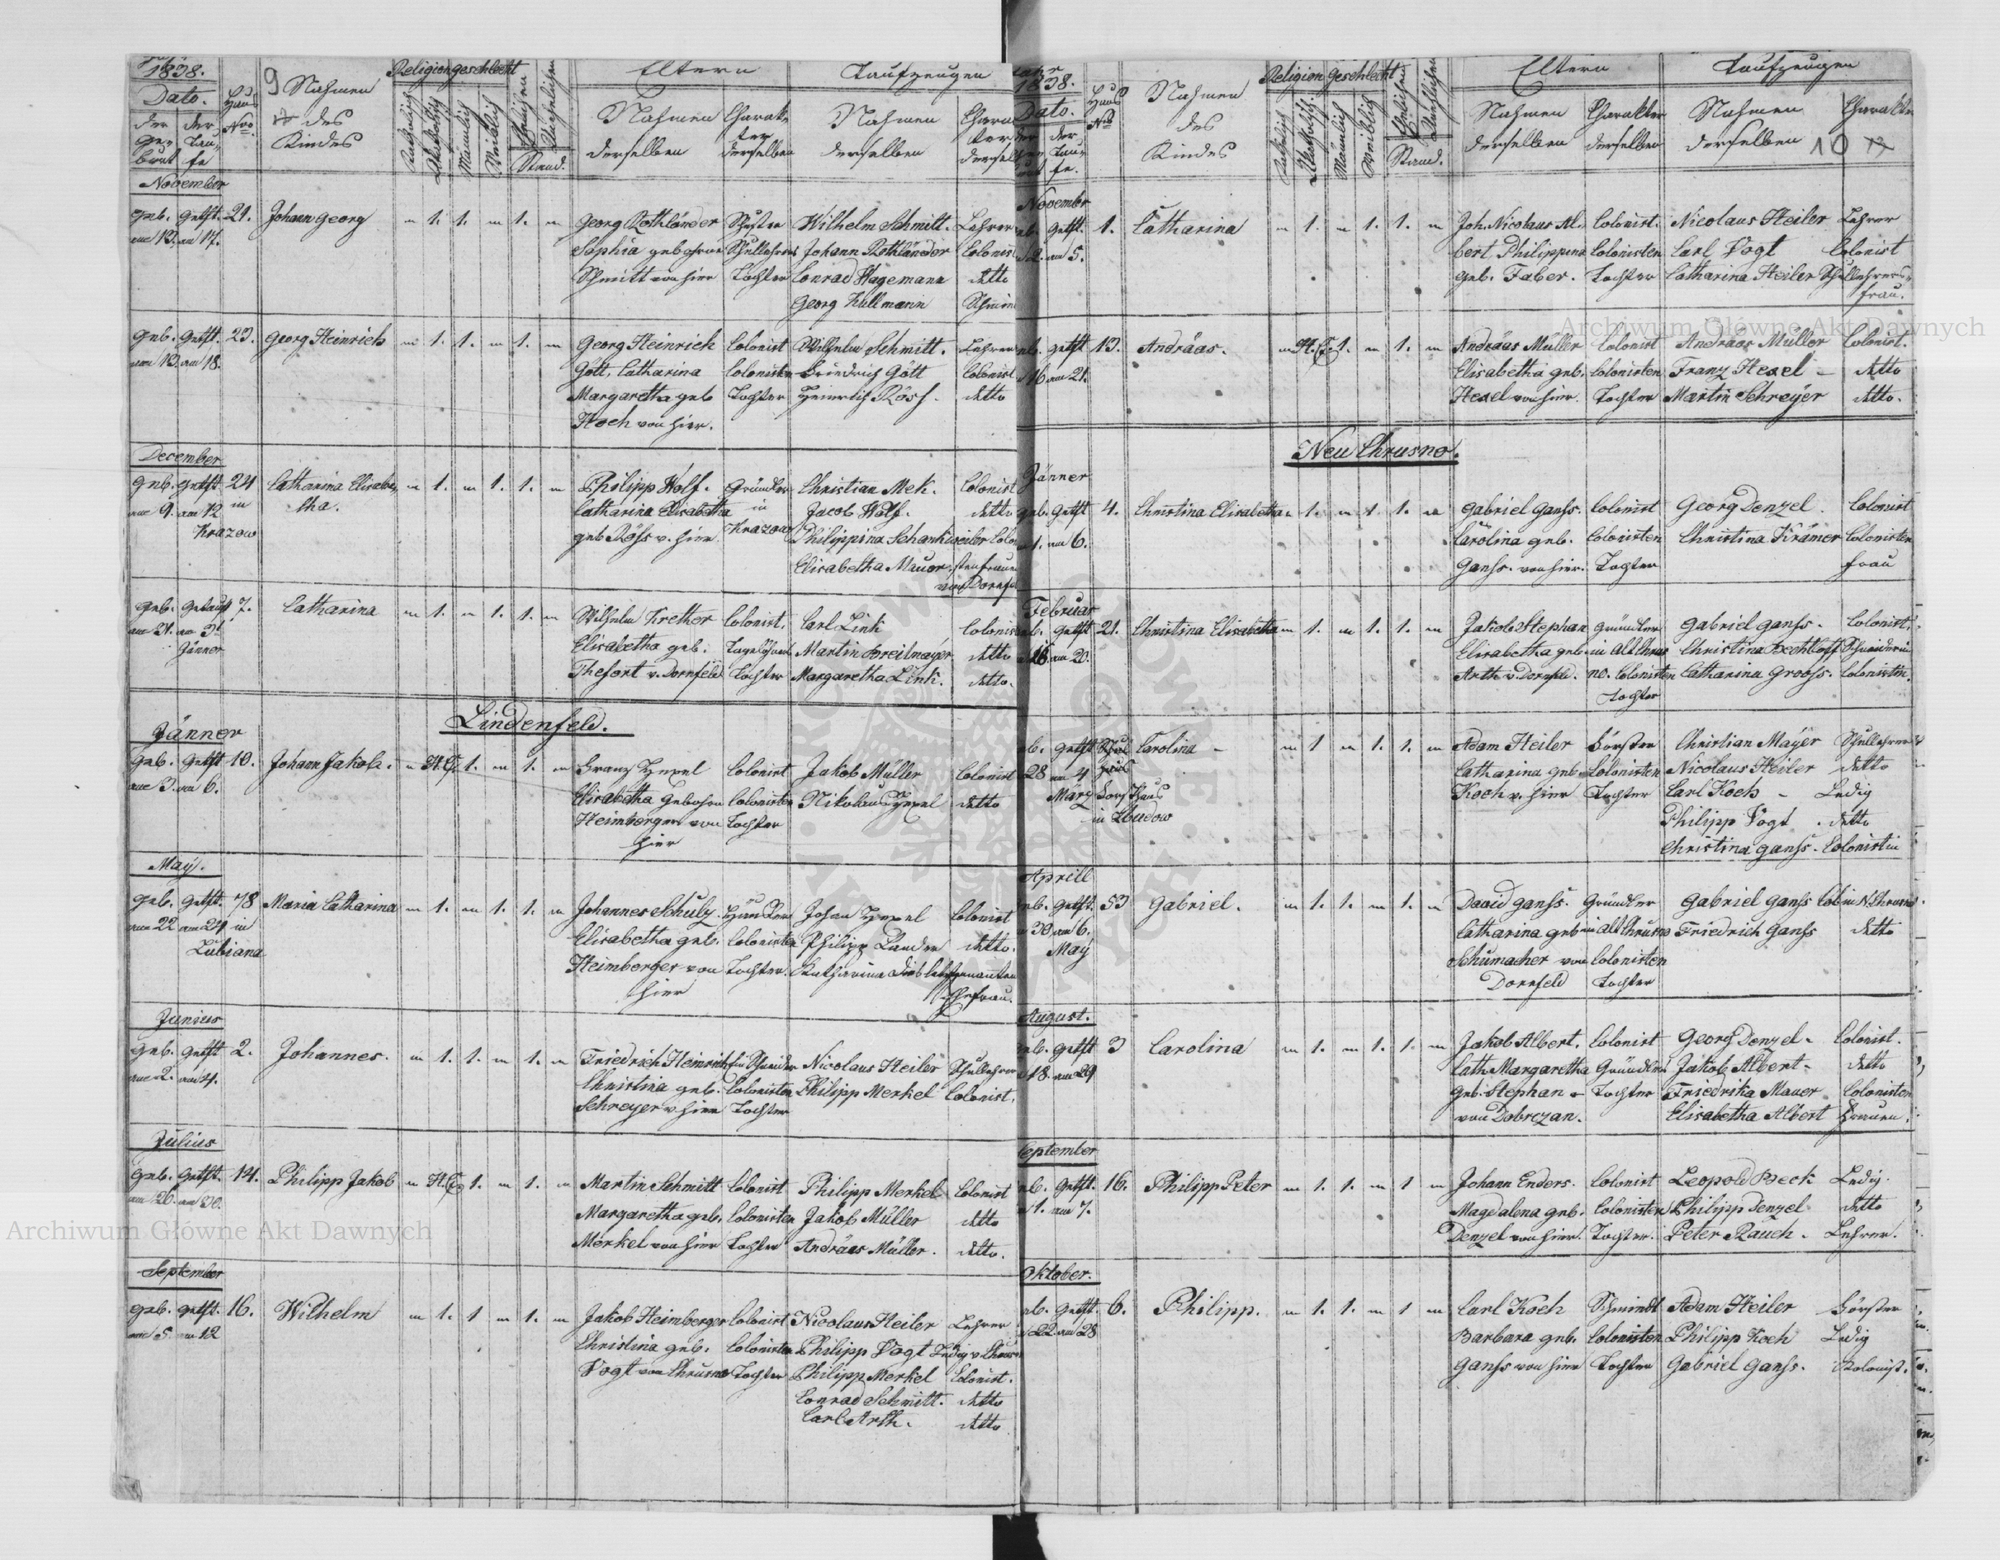 1838.
9
Nahmen
des
Kindes
Religion
Geschlecht
Eltern
Taufzeugen
Dato.
Haus
Nro.
der
Ge-
burt
der
Tau-
fe
Männlich
Weiblich
Stand.
Nahmen
derselben
Charak-
ter
derselben
Nahmen
derselben
November
geb. getft. 21. Johann Georg 1. 1. 1. Georg Rothländer Wilhelm Schmitt. Lehrer
am 13. am 17. Sophia geborne Johann Rothländer
Schmitt von hier Tochter Conrad Hagemann detto
Georg Kullmann
geb. getft. 23. Georg Heinrich 1. 1. 1. Georg Heinrich Colonist Wilhelm Schmitt. Lehrer
am 13. am 18. Gött, Catharina Colonisten Friedrich Gött Colonist
Margaretha geb Tochter Heinrich Rösch. detto
Koch von hier.
December
geb. getft. 24 Catharina Elisabe- 1. 1. 1. Philipp Wolf. Gründler Christian Mek. Colonist
am 9. am 12 in tha. Catharina Elisabetha in Jacob Wolf detto
Krazow v. hier Krazow Philippina
Elisabetha Mauer
geb. getauft 7. Catharina 1. 1. 1. Wilhelm Krether Colonist. Carl Link Colonist
Jänner Elisabetha geb. Martin Breitmayer detto
v. Dornfeld Tochter Margaretha Link. detto.
Lindenfeld.
Jänner
geb. getft. 10. Johann Jakob. 1. 1. Franz Hexel Colonist Jakob Müller Colonist
am 3. am 6. Elisabetha Geborne Colonisten Nikolaus Hexel detto
Heimberger von Tochter
hier
May.
geb. getft. 78 Maria Catharina 1. 1. 1. Johannes Schulz Johan Hexel Colonist
am 22 am 24 in Elisabetha geb. Colonisten Philipp detto.
Lubiana Heimberger von Tochter. Katharina
hier Ehefrau.
Junius
geb. getft 2. Johannes. 1. 1. 1. Friedrich Heinrich Nicolaus Heiler Schullehrer
am 2. am 4. Christina geb. Colonisten Philipp Merkel Colonist.
Schreyer v hier Tochter
Julius
geb. getft. 14. Philipp Jakob 1. 1. Martin Schmitt Colonist Philipp Merkel Colonist
am 26. am 30. Margaretha geb. Colonisten Jakob Müller detto
Merkel von hier Tochter Andräas Müller. detto.
September
geb. getft. 16. Wilhelm 1. 1 1. Jakob Heimberger Colonist Nicolaus Heiler Lehrer
am 5. am 12 Christina geb. Colonisten Philipp Vogt Ledig
Vogt von Chrusno Tochter Philipp Merkel Colonist.
Conrad Schmitt. detto
Carl Arth. detto
1838.
Dato.
Haus
Nro
Nahmen
des
Kindes
Religion
Geschlecht
Stand.
Eltern
Taufzeugen
Nahmen
derselben
Charakter
derselben
Nahmen
derselben
10
November
getft. 1. Catharina 1. 1. 1. Joh. Nicolaus Al- Colonist. Nicolaus Heiler Lehrer
am 5. bert Philippina Colonisten Carl Vogt Colonist
geb. Faber. Tochter Catharina Heiler Schullehrers-
frau.
getft 13. Andräas. 1. 1. Andräas Müller Colonist Andräas Müller Colonist.
16 am 21. Elisabetha geb. Colonisten Franz Hexel detto
Hexel von hier. Tochter Martin Schreyer detto.
Neu Chrusno.
Jänner
geb. getft 4. Christina Elisabetha 1. 1. 1. Gabriel Ganss. Colonist Georg Denzel. Colonist
1. am 6. Carolina geb. Colonisten Christina Krämer Colonisten
Ganss. von hier. Tochter frau
Februar
getft 21. Christina Elisabetha 1. 1. 1. Jakob Stephan Gründler Gabriel Ganss. Colonist.
16. am 20. Elisabetha geb. in Alt Chrus- Christina Bechtloff Schneiderin
Arth v. Dornfeld. no. Colonisten Catharina Grooss. Colonistin.
Tochter
getft Carolina 1 1. 1. Adam Heiler Förster Christian Mayer Schullehrer
28 am 4 Catharina geb Colonisten Nicolaus Heiler detto
März Forsthaus Koch v. hier Tochter Carl Koch Ledig
in Philipp Vogt detto
Christina Ganss. Colonistin
Aprill
geb. getft. 53 Gabriel. 1. 1. 1. David Ganss. Gründler Gabriel Ganss Col in N Chrusno
30 am 6. Catharina geb in Alt Chrusno Friedrich Ganss detto
May Schumacher von Colonisten
Dornfeld Tochter
August.
geb. getft 3 Carolina 1. 1. 1. Jakob Albert. Colonist Georg Denzel. Colonist.
18. am 29 Cath Margaretha Gründler Jakob Albert. detto
geb. Stephan Tochter Friedrika Mauer Colonisten
von Dobrzan. Elisabetha Albert Frauen.
September
geb. getft. 16. Philipp Peter 1. 1. 1 Johann Enders. Colonist Leopold Beck Ledig.
1. am 7. Magdalena geb. Colonisten Philipp Denzel detto
Denzel von hier. Tochter. Peter Rauch. Lehrer.
Oktober.
getft. 6. Philipp. 1. 1. 1 Carl Koch Schmidt Adam Heiler Förster
22 am 28 Barbara geb. Colonisten Philipp Koch Ledig
Ganss von hier Tochter Gabriel Ganss. Kolonist.
Archiwum Główne Akt Dawnych
Archiwum Główne Akt Dawnych